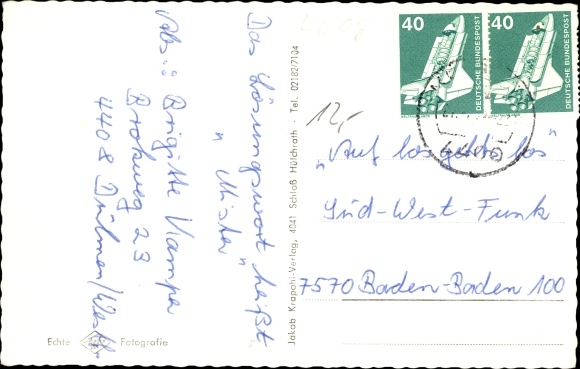 Das Lösungswort heißt
"Mister"
Abs.: Brigitte Kamper
Brokweg 23
4408 Dülmen/Westf.
Echte Fotografie
Jakob Krapohl-Verlag, 4041 Schloß Hülchrath · Tel. 02182/7104
40
DEUTSCHE BUNDESPOST
40
DEUTSCHE BUNDESPOST
12,-
"Auf los gehts los"
Süd-West-Funk
7570 Baden-Baden 100